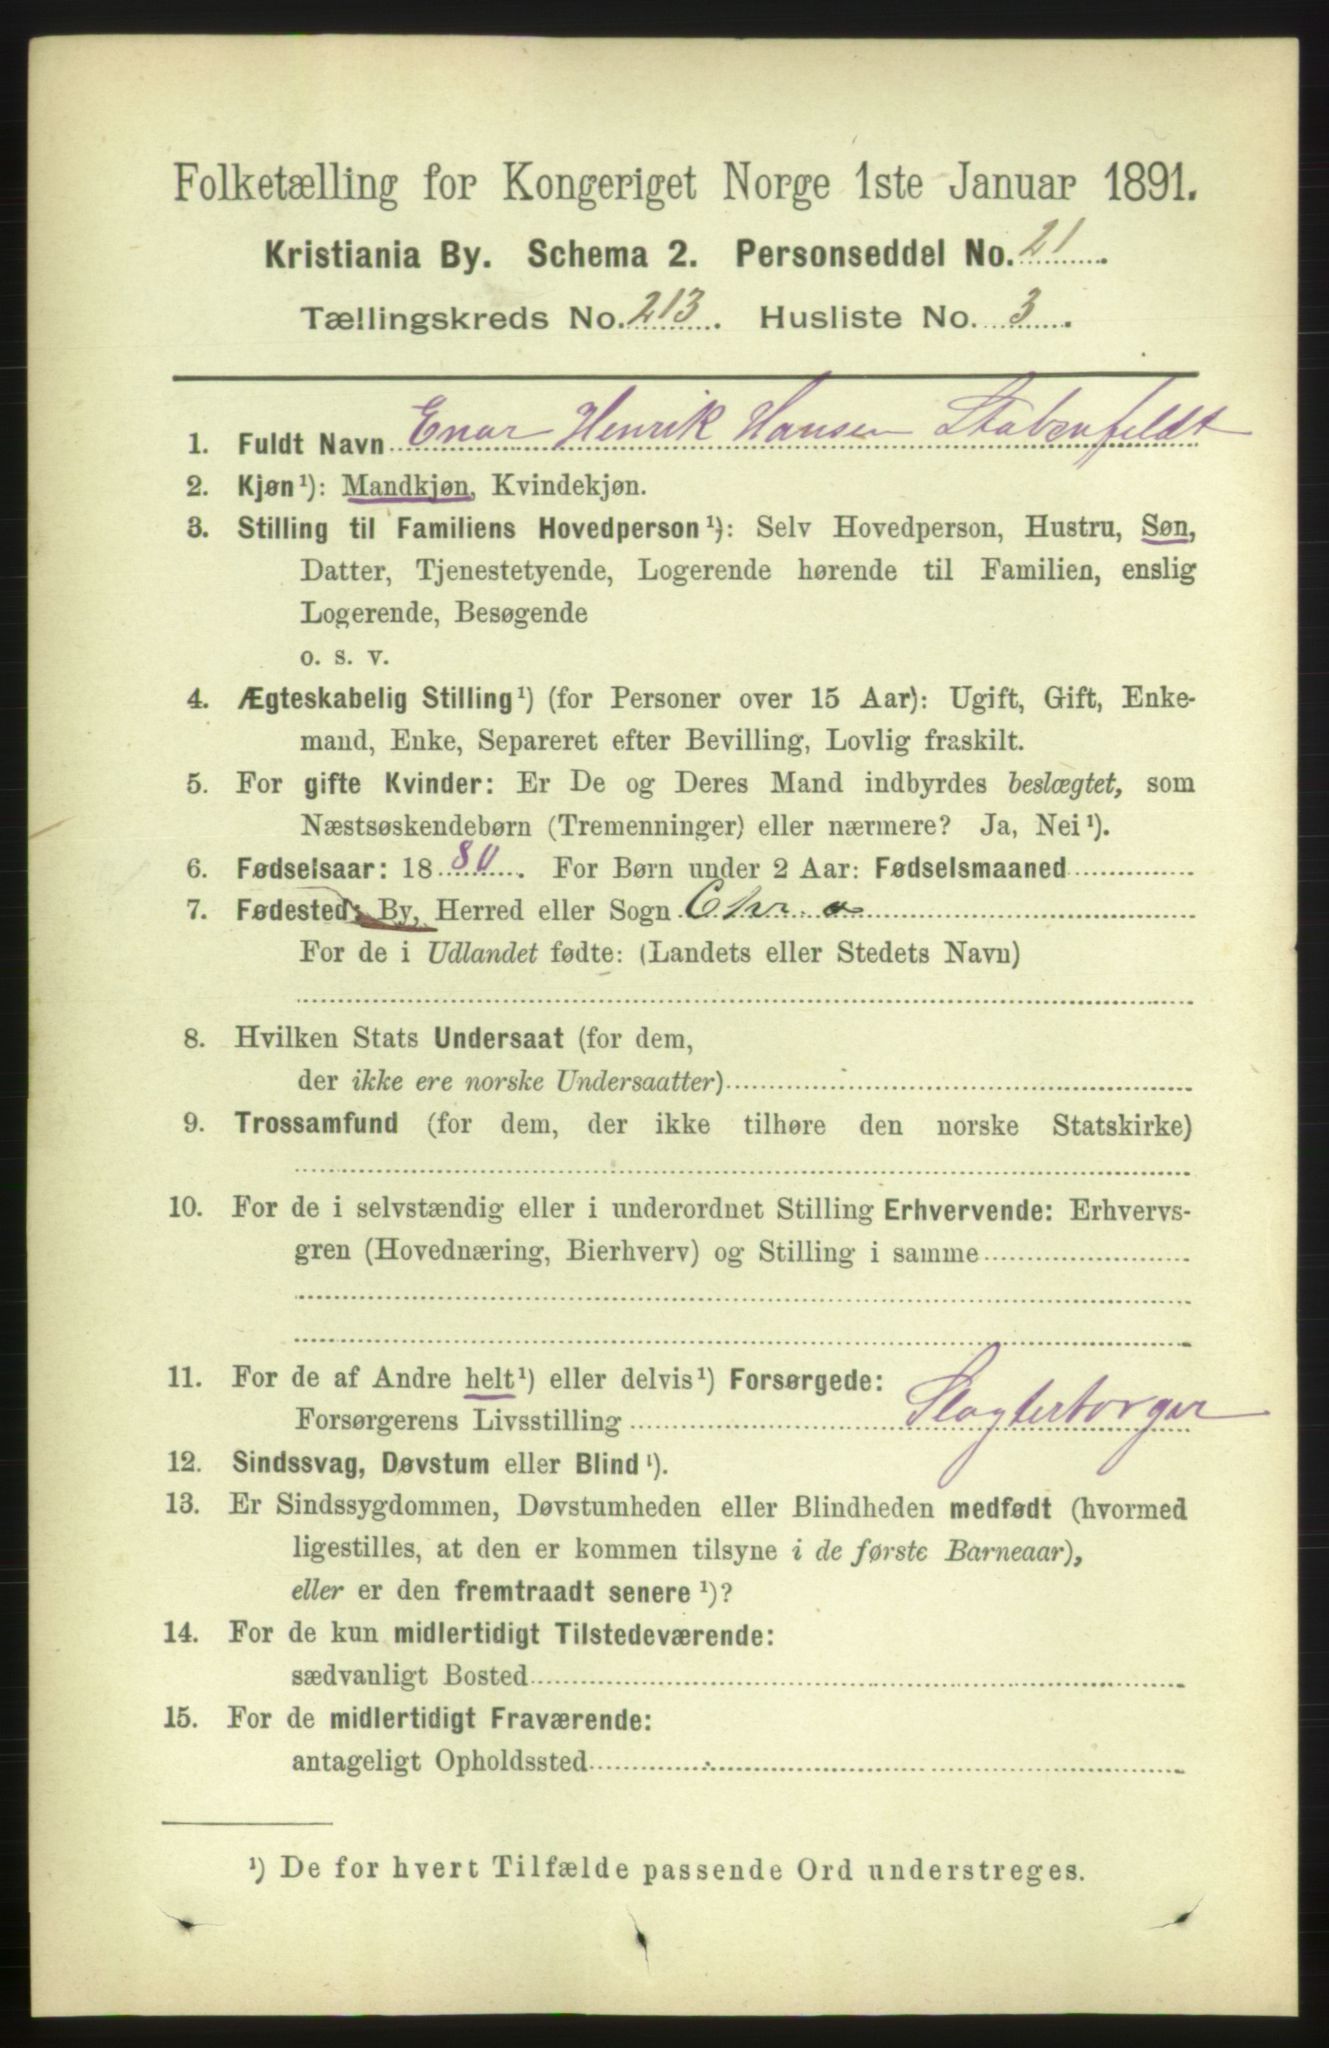 Folketælling for Kongeriget Norge 1ste Januar 1891.
Kristiania By. Schema 2. Personseddel No. 21.
Tællingskreds No. 213. Husliste No. 3.
1. Fuldt Navn Enar Henrik Hansen Stabenfeldt
2. Kjøn¹): Mandkjøn, Kvindekjøn.
3. Stilling til Familiens Hovedperson¹): Selv Hovedperson, Hustru, Søn,
Datter, Tjenestetyende, Logerende hørende til Familien, enslig
Logerende, Besøgende
o. s. v.
4. Ægteskabelig Stilling¹) (for Personer over 15 Aar): Ugift, Gift, Enke-
mand, Enke, Separeret efter Bevilling, Lovlig fraskilt.
5. For gifte Kvinder: Er De og Deres Mand indbyrdes beslægtet, som
Næstsøskendebørn (Tremenninger) eller nærmere? Ja, Nei¹).
6. Fødselsaar: 1880. For Børn under 2 Aar: Fødselsmaaned
7. Fødested: By, Herred eller Sogn Chr.a
For de i Udlandet fødte: (Landets eller Stedets Navn)
8. Hvilken Stats Undersaat (for dem,
der ikke ere norske Undersaatter)
9. Trossamfund (for dem, der ikke tilhøre den norske Statskirke)
10. For de i selvstændig eller i underordnet Stilling Erhvervende: Erhvervs-
gren (Hovednæring, Bierhverv) og Stilling i samme
11. For de af Andre helt¹) eller delvis¹) Forsørgede:
Forsørgerens Livsstilling Slagterborger
12. Sindssvag, Døvstum eller Blind¹).
13. Er Sindssygdommen, Døvstumheden eller Blindheden medfødt (hvormed
ligestilles, at den er kommen tilsyne i de første Barneaar),
eller er den fremtraadt senere¹)?
14. For de kun midlertidigt Tilstedeværende:
sædvanligt Bosted
15. For de midlertidigt Fraværende:
antageligt Opholdssted
¹) De for hvert Tilfælde passende Ord understreges.